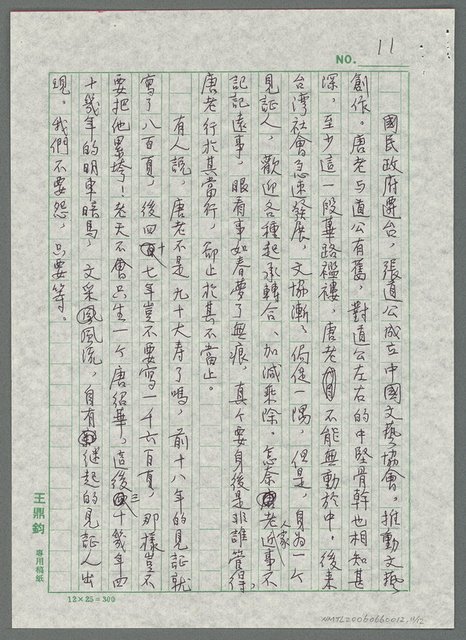 NO. 11
國民政府遷台，張道公成立中國文藝協會，推動文藝
創作。唐老与道公有舊，對道公左右的中堅骨幹也相知甚
深，至少這一段篳路襤褸，唐老不能無動於中，後來
台灣社會急速發展，文協漸漸偏促一隅，但是，身為一个
見証人，歡迎各種起承轉合、加減乘除。怎奈唐老人家近事不
記記遠事，眼看事如春夢了無痕，真个要身後是非誰管得，
唐老行於其當行，卻止於其不當止。
有人說，唐老不是九十大寿了嗎，前十八年的見証就
寫了八百頁，後四十七年豈不要寫一千六百頁，那樣豈不
要把他累垮！老天不會只生一个唐紹華，這後三十幾年四
十幾年的明車暗馬，文采風流，自有繼起的見証人出
現。我們不要怨，只要等。
王鼎鈞 專用稿紙
12×25=300
NMTL20060660012, 11/12